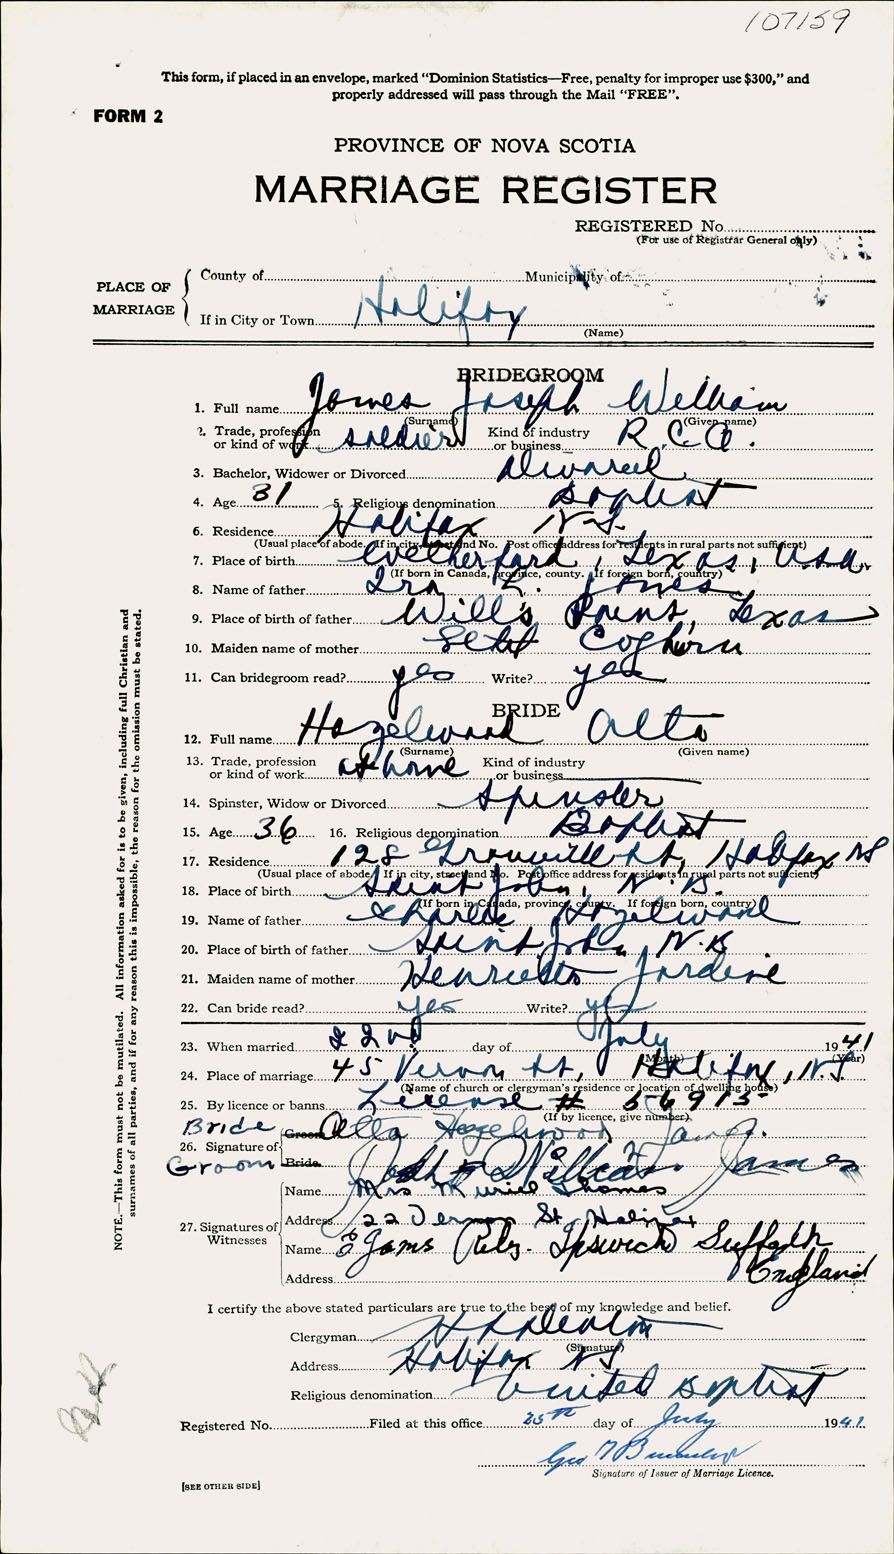 107159
This form, if placed in an envelope, marked “Dominion Statistics—Free, penalty for improper use $300,” and
properly addressed will pass through the Mail “FREE”.
FORM 2
PROVINCE OF NOVA SCOTIA
MARRIAGE REGISTER
REGISTERED No.
(For use of Registrar General only)
PLACE OF MARRIAGE
County of Municipality of
If in City or Town Halifax
(Name)
BRIDEGROOM
1. Full name James Joseph William
(Surname) (Given name)
2. Trade, profession or kind of work soldier Kind of industry or business R.C.A.
3. Bachelor, Widower or Divorced divorced
4. Age 31 5. Religious denomination Baptist
6. Residence Halifax N.S.
(Usual place of abode. If in city, street and No. Post office address for residents in rural parts not sufficient)
7. Place of birth Wetherford, Texas, USA.
(If born in Canada, province, county. If foreign born, country)
8. Name of father Ira E. James
9. Place of birth of father Will's Point, Texas
10. Maiden name of mother
11. Can bridegroom read? yes Write? yes
BRIDE
12. Full name Hazelwood Alta
(Surname) (Given name)
13. Trade, profession or kind of work at home Kind of industry or business
14. Spinster, Widow or Divorced Spinster
15. Age 36 16. Religious denomination Baptist
17. Residence 128 Granville St, Halifax NS
(Usual place of abode. If in city, street and No. Post office address for residents in rural parts not sufficient)
18. Place of birth Saint John, N.B.
(If born in Canada, province, county. If foreign born, country)
19. Name of father Charles Hazelwood
20. Place of birth of father Saint John N.B
21. Maiden name of mother Henrietta Jardine
22. Can bride read? yes Write? yes
23. When married 22nd day of July 1941
(Month) (Year)
24. Place of marriage 45 Vernon St, Halifax, N.S.
(Name of church or clergyman's residence or location of dwelling house)
25. By licence or banns License # 56913
(If by licence, give number)
Bride Groom Alta Hazelwood James.
26. Signature of
Groom Bride Joseph William James
Name Mrs Muriel Thomas
27. Signatures of Witnesses
Address 22 Vernon St. Halifax
Name Ipswich Suffolk
Address England
I certify the above stated particulars are true to the best of my knowledge and belief.
Clergyman
(Signature)
Address Halifax NS
Religious denomination United Baptist
Registered No. Filed at this office 25th day of July 1941
Geo
Signature of Issuer of Marriage Licence.
[SEE OTHER SIDE]
NOTE.—This form must not be mutilated. All information asked for is to be given, including full Christian and
surnames of all parties, and if for any reason this is impossible, the reason for the omission must be stated.